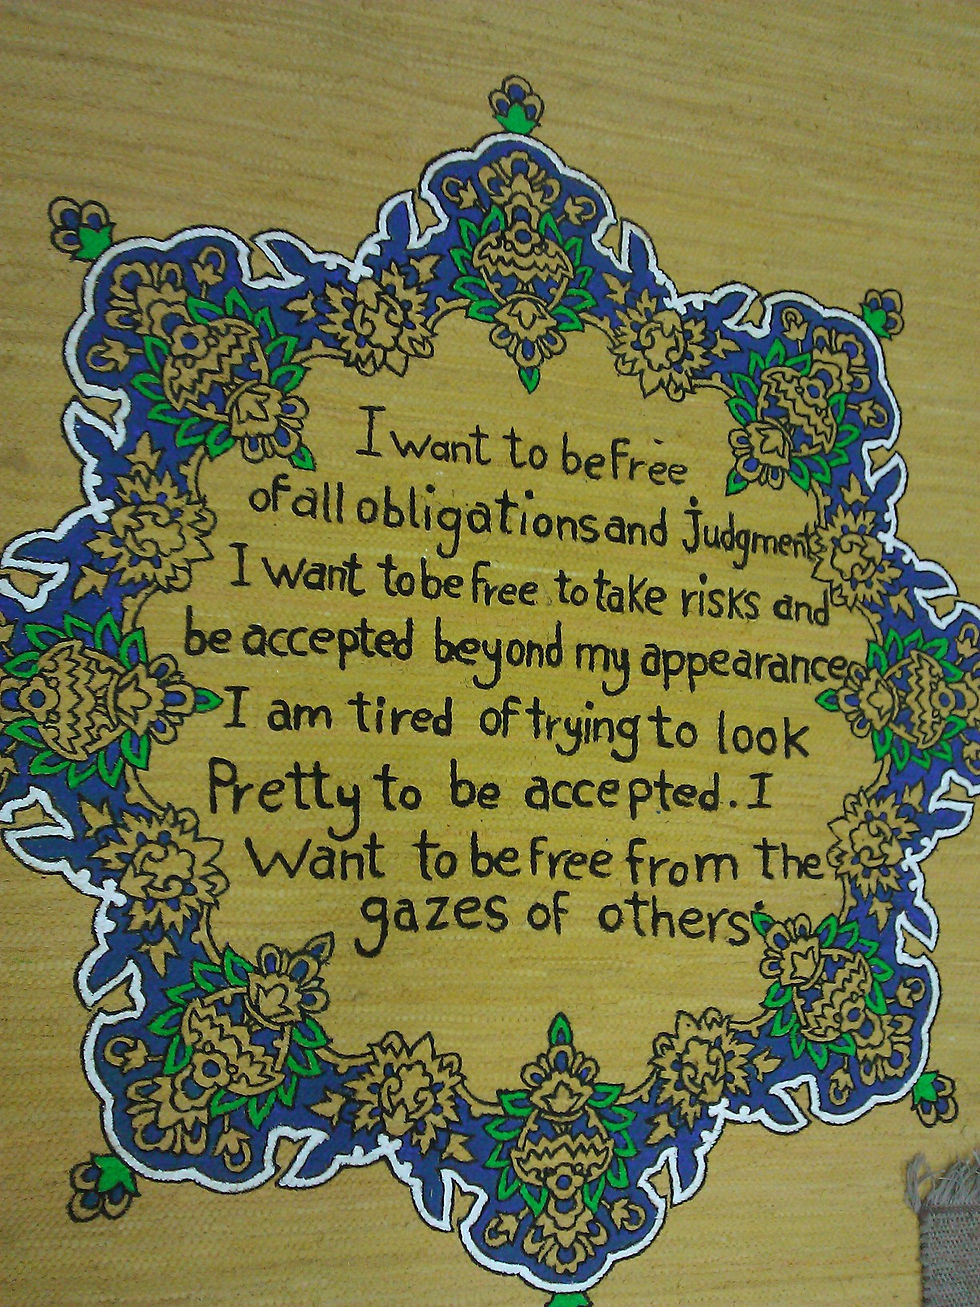 I want to be free
of all obligations and judgments
I want to be free to take risks and
be accepted beyond my appearance
I am tired of trying to look
Pretty to be accepted. I
Want to be free from the
gazes of others.